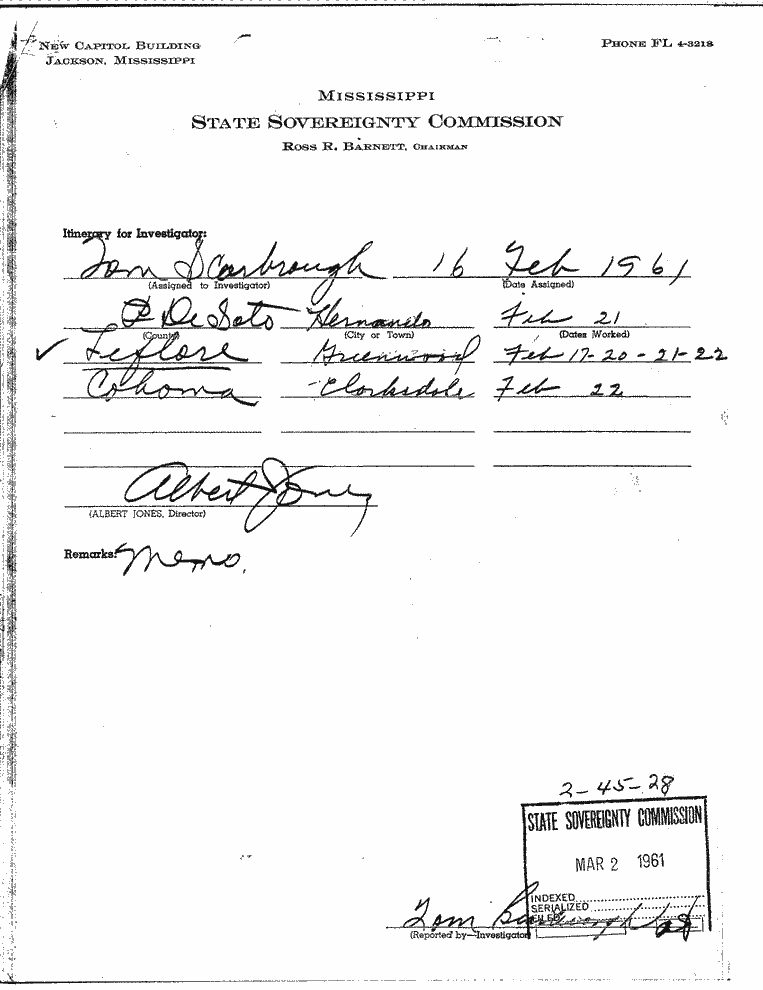 NEW CAPITOL BUILDING
JACKSON, MISSISSIPPI
PHONE FL 4-3218
MISSISSIPPI
STATE SOVEREIGNTY COMMISSION
ROSS R. BARNETT, CHAIRMAN
Itinerary for Investigator:
Tom Scarbrough 16 Feb 1961
(Assigned to Investigator) (Date Assigned)
DeSoto Hernando Feb 21
(County) (City or Town) (Dates Worked)
✓ Leflore Greenwood Feb 17-20-21-22
Cohoma Clarksdale Feb 22
Albert Jones
(ALBERT JONES, Director)
Remarks: Memo.
2-45-28
STATE SOVEREIGNTY COMMISSION
MAR 2 1961
INDEXED
SERIALIZED
FILED
Tom
(Reported by—Investigator)